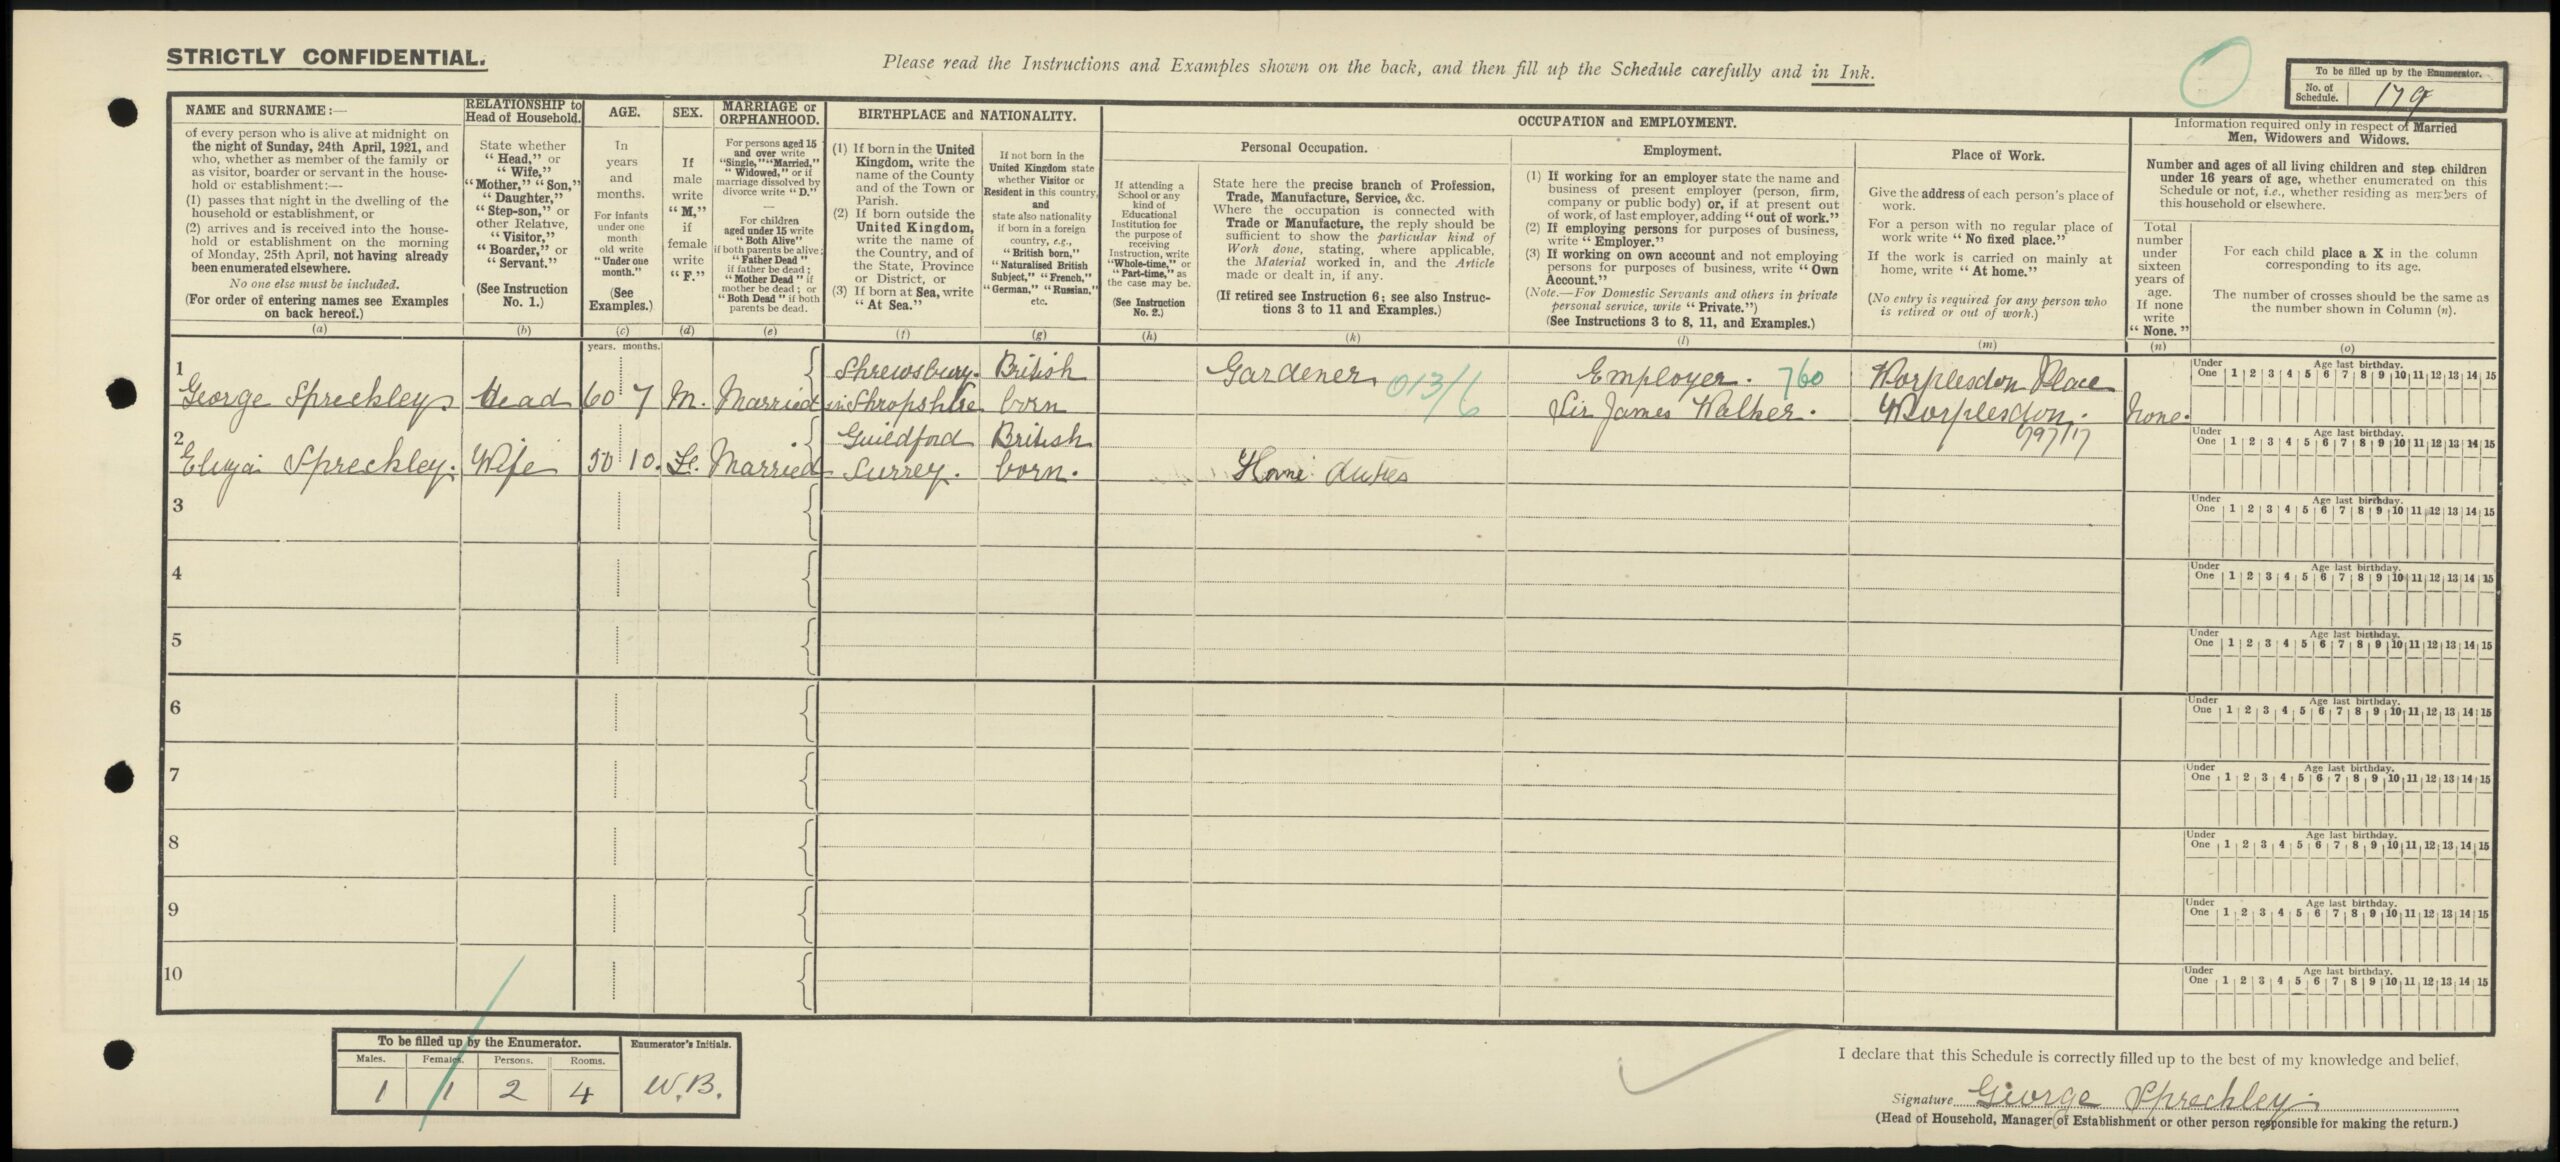 STRICTLY CONFIDENTIAL.
Please read the Instructions and Examples shown on the back, and then fill up the Schedule carefully and in Ink.
To be filled up by the Enumerator.
No. of Schedule. 179
NAME and SURNAME:—
of every person who is alive at midnight on
the night of Sunday, 24th April, 1921, and
who, whether as member of the family or
as visitor, boarder or servant in the house-
hold or establishment:—
(1) passes that night in the dwelling of the
household or establishment, or
(2) arrives and is received into the house-
hold or establishment on the morning
of Monday, 25th April, not having already
been enumerated elsewhere.
No one else must be included.
(For order of entering names see Examples
on back hereof.)
(a)
RELATIONSHIP to
Head of Household.
State whether
"Head," or
"Wife,"
"Mother," "Son,"
"Daughter,"
"Step-son," or
other Relative,
"Visitor,"
"Boarder," or
"Servant."
(See Instruction
No. 1.)
(b)
AGE.
In
years
and
months.
For infants
under one
month
old write
"Under one
month."
(See
Examples.)
(c)
SEX.
If
male
write
"M,"
if
female
write
"F."
(d)
MARRIAGE or
ORPHANHOOD.
For persons aged 15
and over write
"Single," "Married,"
"Widowed," or if
marriage dissolved by
divorce write "D."
—
For children
aged under 15 write
"Both Alive"
if both parents be alive;
"Father Dead"
if father be dead;
"Mother Dead" if
mother be dead; or
"Both Dead" if both
parents be dead.
(e)
BIRTHPLACE and NATIONALITY.
(1) If born in the United
Kingdom, write the
name of the County
and of the Town or
Parish.
(2) If born outside the
United Kingdom,
write the name of
the Country, and of
the State, Province
or District, or
(3) If born at Sea, write
"At Sea."
(f)
If not born in the
United Kingdom state
whether Visitor or
Resident in this country,
and
state also nationality
if born in a foreign
country, e.g.,
"British born,"
"Naturalised British
Subject," "French,"
"German," "Russian,"
etc.
(g)
OCCUPATION and EMPLOYMENT.
If attending a
School or any
kind of
Educational
Institution for
the purpose of
receiving
Instruction, write
"Whole-time," or
"Part-time," as
the case may be.
(See Instruction
No. 2.)
(h)
Personal Occupation.
State here the precise branch of Profession,
Trade, Manufacture, Service, &c.
Where the occupation is connected with
Trade or Manufacture, the reply should be
sufficient to show the particular kind of
Work done, stating, where applicable,
the Material worked in, and the Article
made or dealt in, if any.
(If retired see Instruction 6; see also Instruc-
tions 3 to 11 and Examples.)
(k)
Employment.
(1) If working for an employer state the name and
business of present employer (person, firm,
company or public body) or, if at present out
of work, of last employer, adding "out of work."
(2) If employing persons for purposes of business,
write "Employer."
(3) If working on own account and not employing
persons for purposes of business, write "Own
Account."
(Note.—For Domestic Servants and others in private
personal service, write "Private.")
(See Instructions 3 to 8, 11, and Examples.)
(l)
Place of Work.
Give the address of each person's place of
work.
For a person with no regular place of
work write "No fixed place."
If the work is carried on mainly at
home, write "At home."
(No entry is required for any person who
is retired or out of work.)
(m)
Information required only in respect of Married
Men, Widowers and Widows.
Number and ages of all living children and step children
under 16 years of age, whether enumerated on this
Schedule or not, i.e., whether residing as members of
this household or elsewhere.
Total
number
under
sixteen
years of
age.
If none
write
"None."
(n)
For each child place a X in the column
corresponding to its age.
The number of crosses should be the same as
the number shown in Column (n).
(o)
years. months.
1 George Spreckley Head 60 7 M. Married Shrewsbury in Shropshire British born Gardener 013/6 Employer. 760 Sir James Walker. Worplesdon Place Worplesdon. 797/17 None.
Under One Age last birthday. 1 2 3 4 5 6 7 8 9 10 11 12 13 14 15
2 Spreckley. Wife 50 10. Fe. Married Guildford Surrey. British born. Home duties
Under One Age last birthday. 1 2 3 4 5 6 7 8 9 10 11 12 13 14 15
3
Under One Age last birthday. 1 2 3 4 5 6 7 8 9 10 11 12 13 14 15
4
Under One Age last birthday. 1 2 3 4 5 6 7 8 9 10 11 12 13 14 15
5
Under One Age last birthday. 1 2 3 4 5 6 7 8 9 10 11 12 13 14 15
6
Under One Age last birthday. 1 2 3 4 5 6 7 8 9 10 11 12 13 14 15
7
Under One Age last birthday. 1 2 3 4 5 6 7 8 9 10 11 12 13 14 15
8
Under One Age last birthday. 1 2 3 4 5 6 7 8 9 10 11 12 13 14 15
9
Under One Age last birthday. 1 2 3 4 5 6 7 8 9 10 11 12 13 14 15
10
Under One Age last birthday. 1 2 3 4 5 6 7 8 9 10 11 12 13 14 15
To be filled up by the Enumerator.
Males. Females. Persons. Rooms.
1 1 2 4
Enumerator's Initials.
W.B.
I declare that this Schedule is correctly filled up to the best of my knowledge and belief.
Signature George Spreckley.
(Head of Household, Manager of Establishment or other person responsible for making the return.)